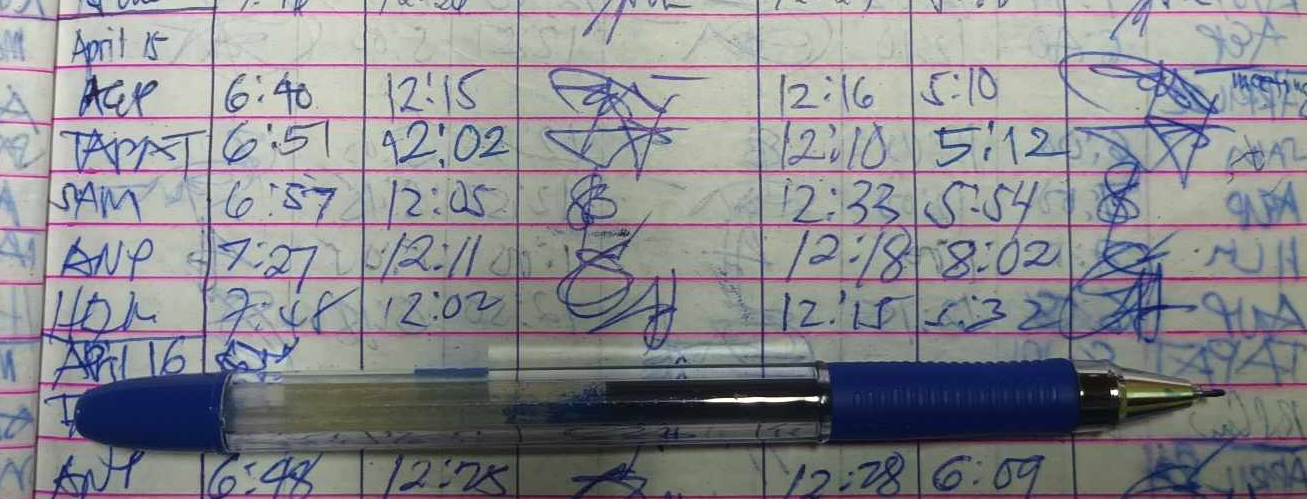 April 15
AGP 6:40 12:15 12:16 5:10
TAPAT 6:51 12:02 12:10 5:12
SAM 6:57 12:05 12:33 5:54
ANP 7:27 12:11 12:18 8:02
HDM 7:48 12:02 12:15 5:32
APRil 16
ANP 6:48 12:25 12:28 6:09